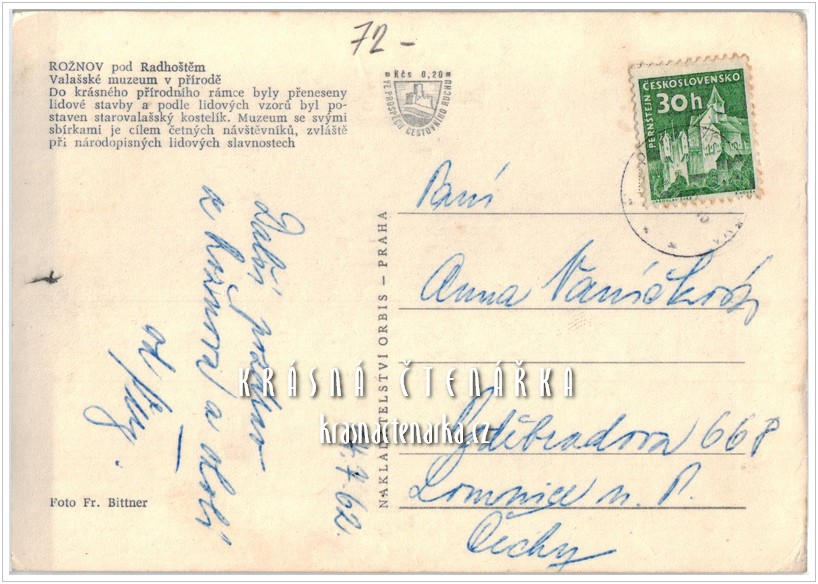 72 -
ROŽNOV pod Radhoštěm
Valašské muzeum v přírodě
Do krásného přírodního rámce byly přeneseny
lidové stavby a podle lidových vzorů byl po-
staven starovalašský kostelík. Muzeum se svými
sbírkami je cílem četných návštěvníků, zvláště
při národopisných lidových slavnostech
Kčs 0,20
VE PROSPĚCH CESTOVNÍHO RUCHU
ČESKOSLOVENSKO
30h
PERNŠTEJN
Další pozdrav
z Rožnova a okolí
4.7.62
NAKLADATELSTVÍ ORBIS - PRAHA
Paní
Anna Vaníčková
Poděbradova 668
Lomnice n. P.
Čechy
KRÁSNÁ ČTENÁŘKA
krasnactenarka.cz
Foto Fr. Bittner